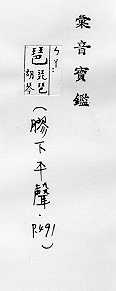 彙音寶鑑
ㄅㄚˊ
琶 琵琶 胡琴
(膠下平聲·P.491)